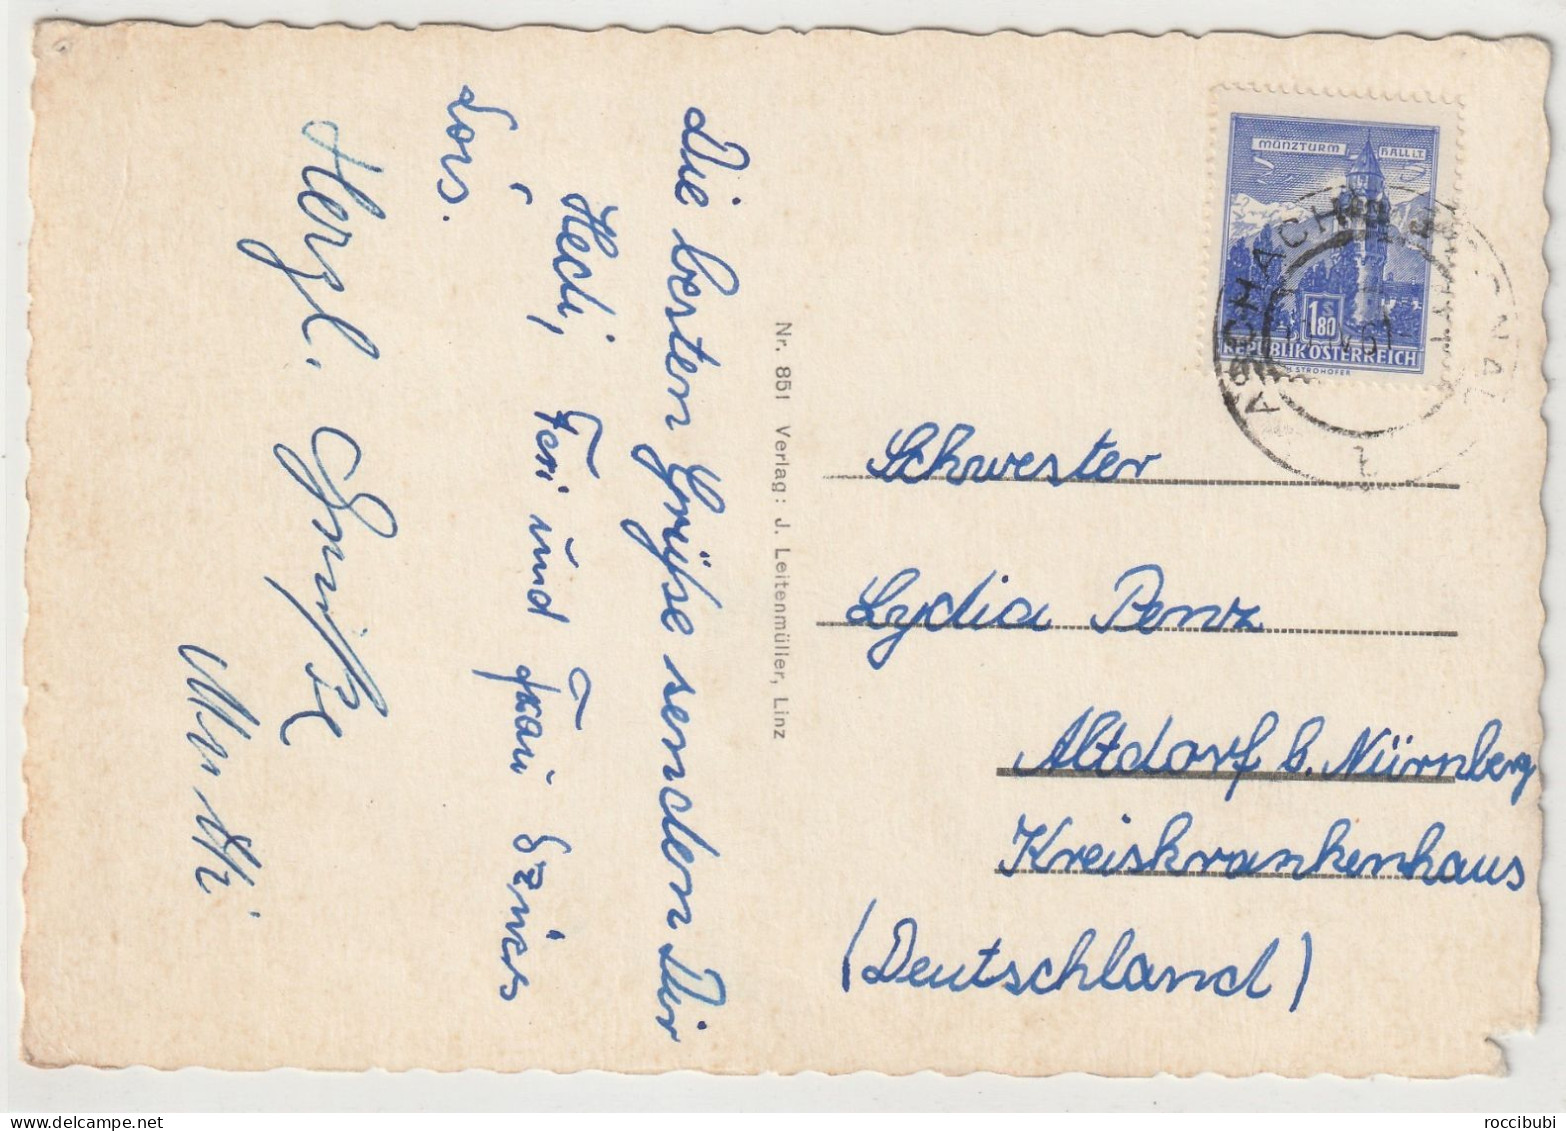 Die besten Grüße senden Dir
Hedi, Feri und Frau
Lois.
Herzl. Grüße
Mutti
Nr. 851 Verlag: J. Leitenmüller, Linz
MÜNZTURM HALL i.T.
S
1.80
REPUBLIK ÖSTERREICH
H. STROHOFER
ASCHACH
Schwester
Lydia Penz
Altdorf b. Nürnberg
Kreiskrankenhaus
(Deutschland)
roccibubi